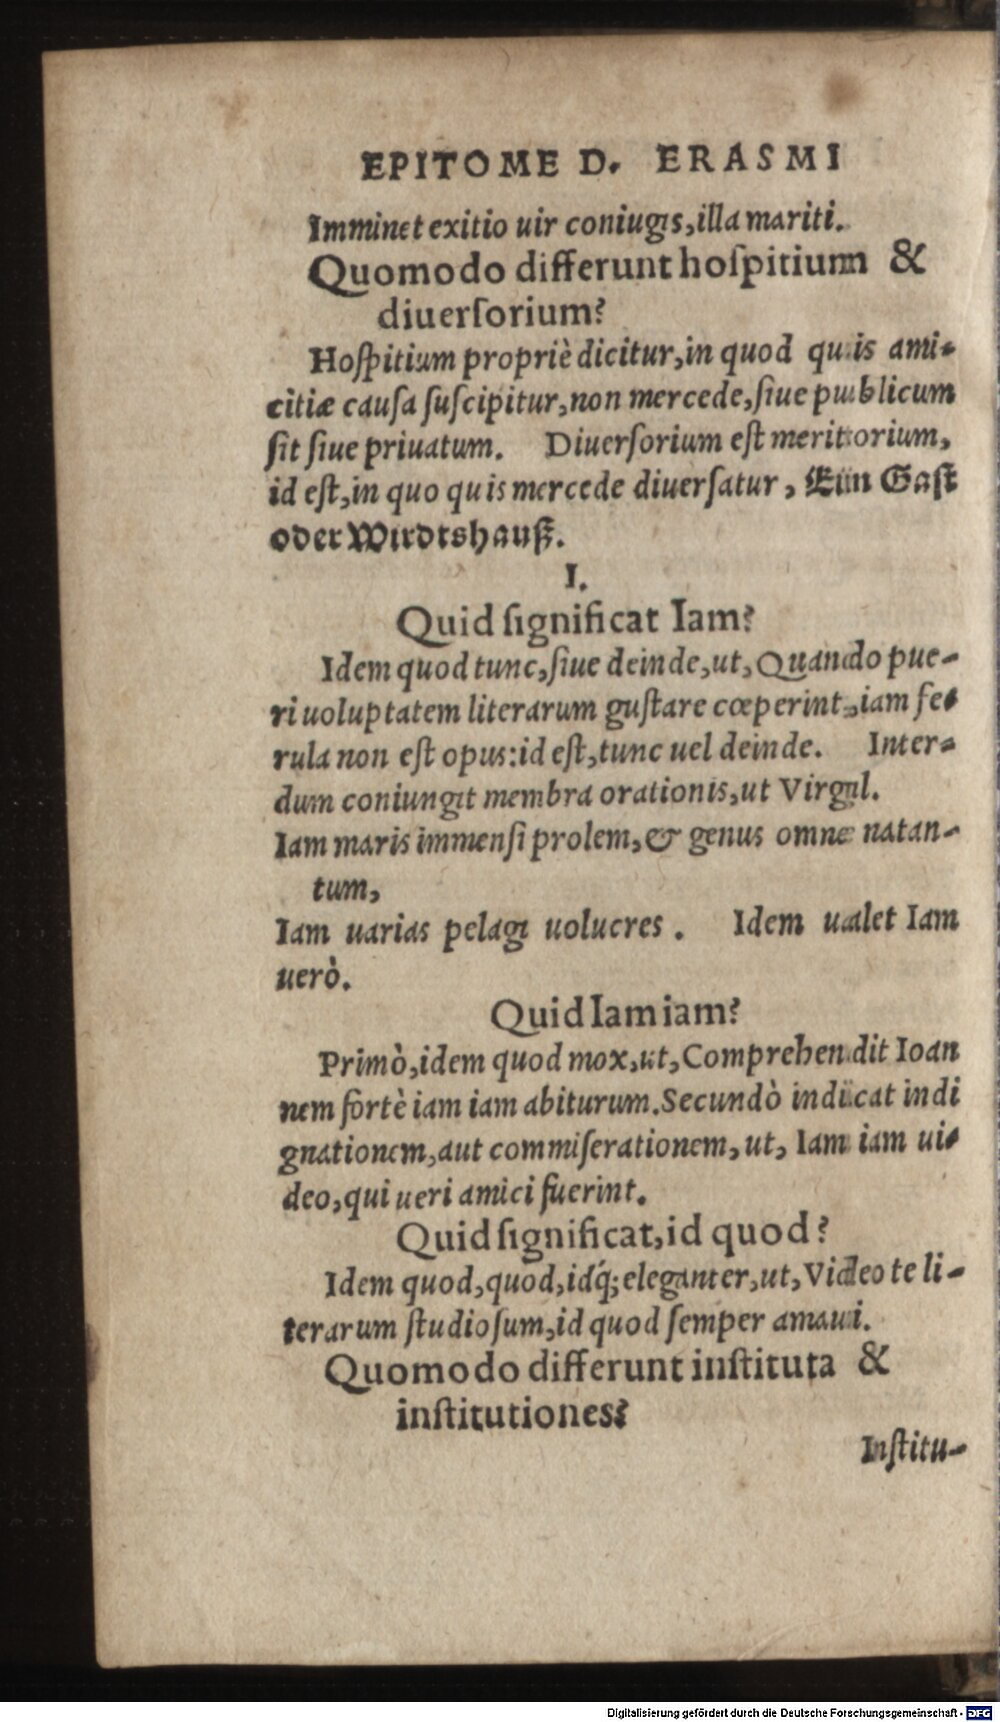 EPITOME D. ERASMI
Imminet exitio uir coniugis, illa mariti.
Quomodo differunt hoſpitium &
diuerſorium?
Hoſpitium propriè dicitur, in quod quis ami-
citiæ cauſa ſuſcipitur, non mercede, ſiue publicum
ſit ſiue priuatum. Diuerſorium eſt meritorium,
id eſt, in quo quis mercede diuerſatur, Eiin Gaſt
oder Wirdtshauß.
I.
Quid ſignificat Iam?
Idem quod tunc, ſiue deinde, ut, Quando pue-
ri uoluptatem literarum guſtare cœperint, iam fe-
rula non eſt opus: id eſt, tunc uel deinde. Inter-
dum coniungit membra orationis, ut Virgil.
Iam maris immenſi prolem, & genus omne natan-
tum,
Iam uarias pelagi uolucres. Idem ualet Iam
uerò.
Quid Iam iam?
Primò, idem quod mox, ut, Comprehendit Ioan
nem fortè iam iam abiturum. Secundò indicat indi
gnationem, aut commiſerationem, ut, Iam iam ui-
deo, qui ueri amici fuerint.
Quid ſignificat, id quod?
Idem quod, quod, idq́; eleganter, ut, Video te li-
terarum ſtudioſum, id quod ſemper amaui.
Quomodo differunt inſtituta &
inſtitutiones?
Inſtitu-
Digitalisierung gefördert durch die Deutsche Forschungsgemeinschaft - DFG